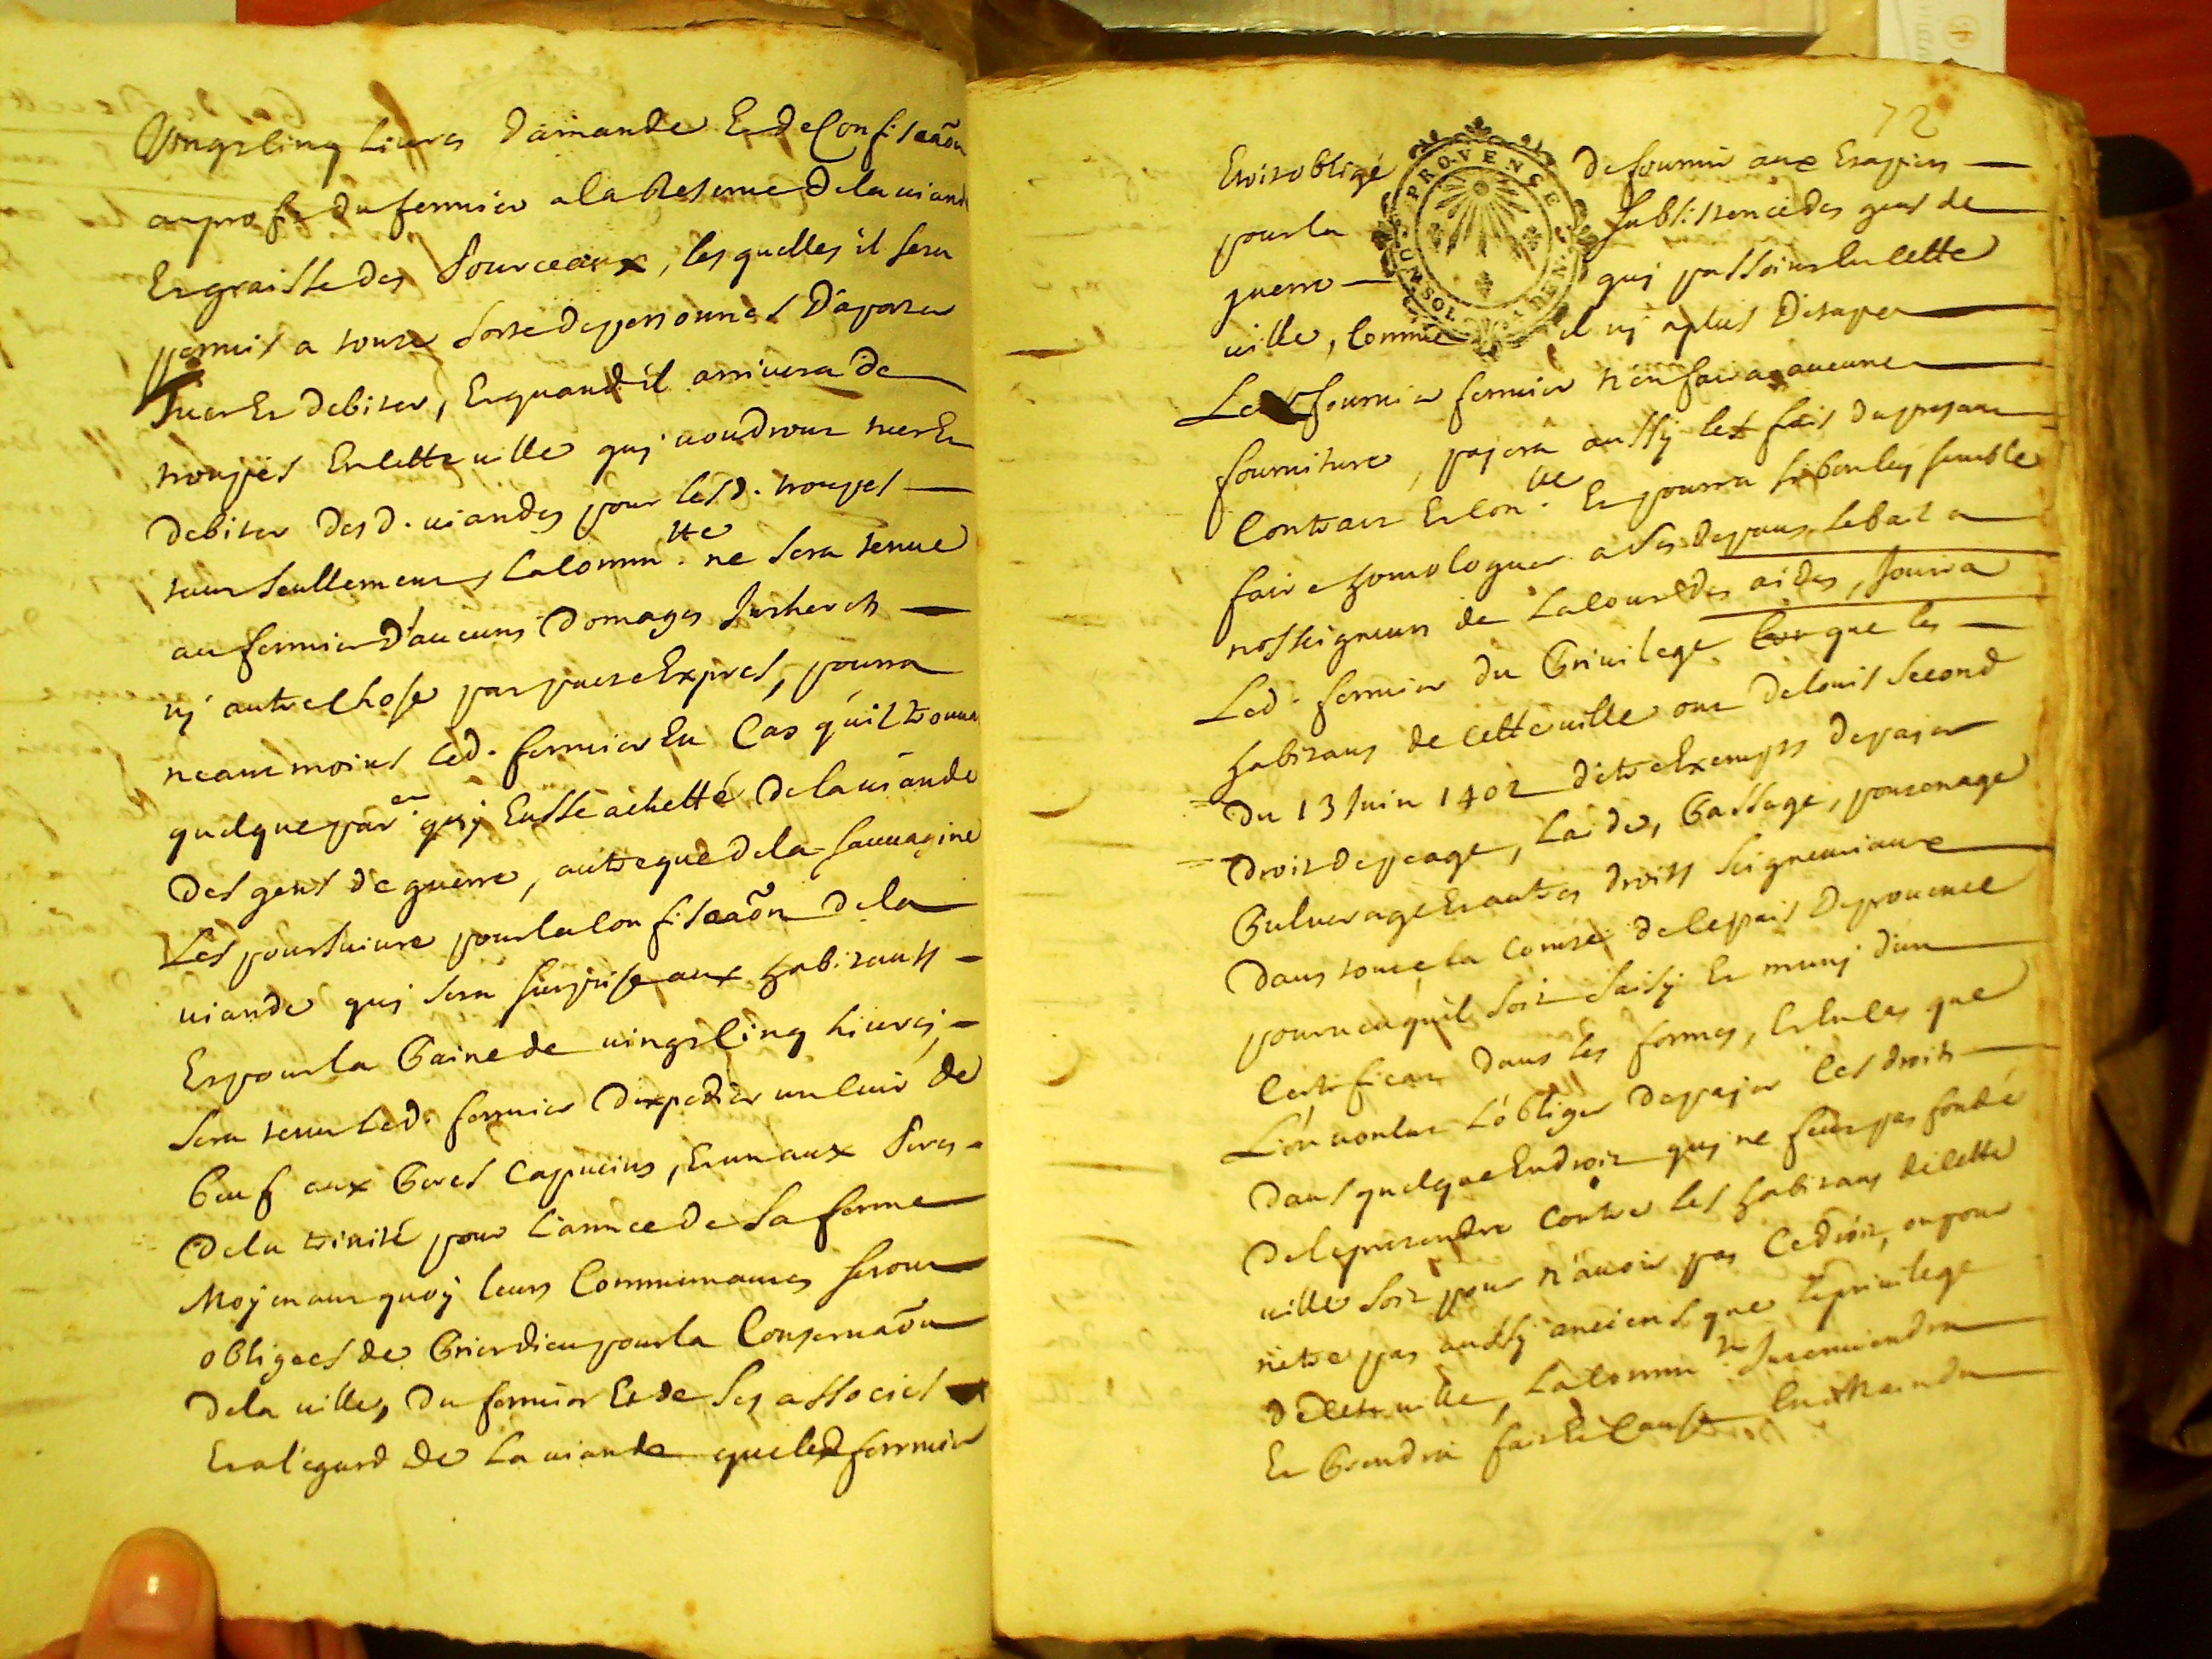 Vingt cinq Livres damande Et de Confiscaõn
au profit du fermier a la Reserue de la uiand
Et graisse des Pourceaux, les quelles il sera
permis a toute sorte de personnes D'aporter
Tuer Et debiter, Et quand il arriuera de
troupes En cette uille quj uoudront tuer Et
debiter des d. uiandes pour les d. troupes
tant seullement, la Comm.tte ne sera tenue
au fermier D'aucuns Domages Interets
nj autre chose par pacte Expres, pourra
neantmoins led. fermier En Cas qu'il trouua
quelque par.er quj Eusse achetté de la uiande
des gens de guerre, autre que de la sauuagine
Les poursuiure pour la Confiscaõn de la
uiande quj sera surprise aux habitants
Et pour la Paine de uingt Cinq liures,
sera tenu led. fermier dexpedier un Cuir de
Beuf aux Peres Capucins, Et un aux Peres
de la trinité pour L'année de sa ferme
Moyenant quoy leurs Communautes seront
obligees de Prier dieu pour la Conseruaõn
de la uille, du fermier Et de ses associes
Et a l'egard de la uiande que led fermier
72
Etoit obligé de fournir aux Etapiers
pour la subsistence des gens de
guerre quj passoint En cette
uille, Comme il nj a plus D'etape
Led fournier fermier n'en faira aucune
fourniture, payera aussy les frais du present
Contract Et Con.tte Et pourra si bon luy semble
faire homologuer a ses depans le bail a
nosseigneurs de la Cour des aides, Jouira
Led. fermier du Priuilege que les
habitans de cette uille ont de louis second
du 13 Juin 1402 d'etre Exempts de payer
droit de peage, Laide, Passage, pontonage
Puluerage Et autres droits seigneuriaux
dans toute la Comté de ce pais de prouence
pourueu qu'il soit saisy Et munj d'un
Certificat dans les formes, Et En Cas que
L'on uoulut L'obliger de payer les droits
dans quelque Endroit quj ne feut pas fondé
de le pretendre Contre les habitans de cette
uille soit pour n'auoir pas Ce droit, ou pour
n'etre pas aussy anciens que le priuilege
de cette uille, la Comm.tte Interuiendra
Et Prendra fait Et Cause
PROVENCE
SOL
DEN